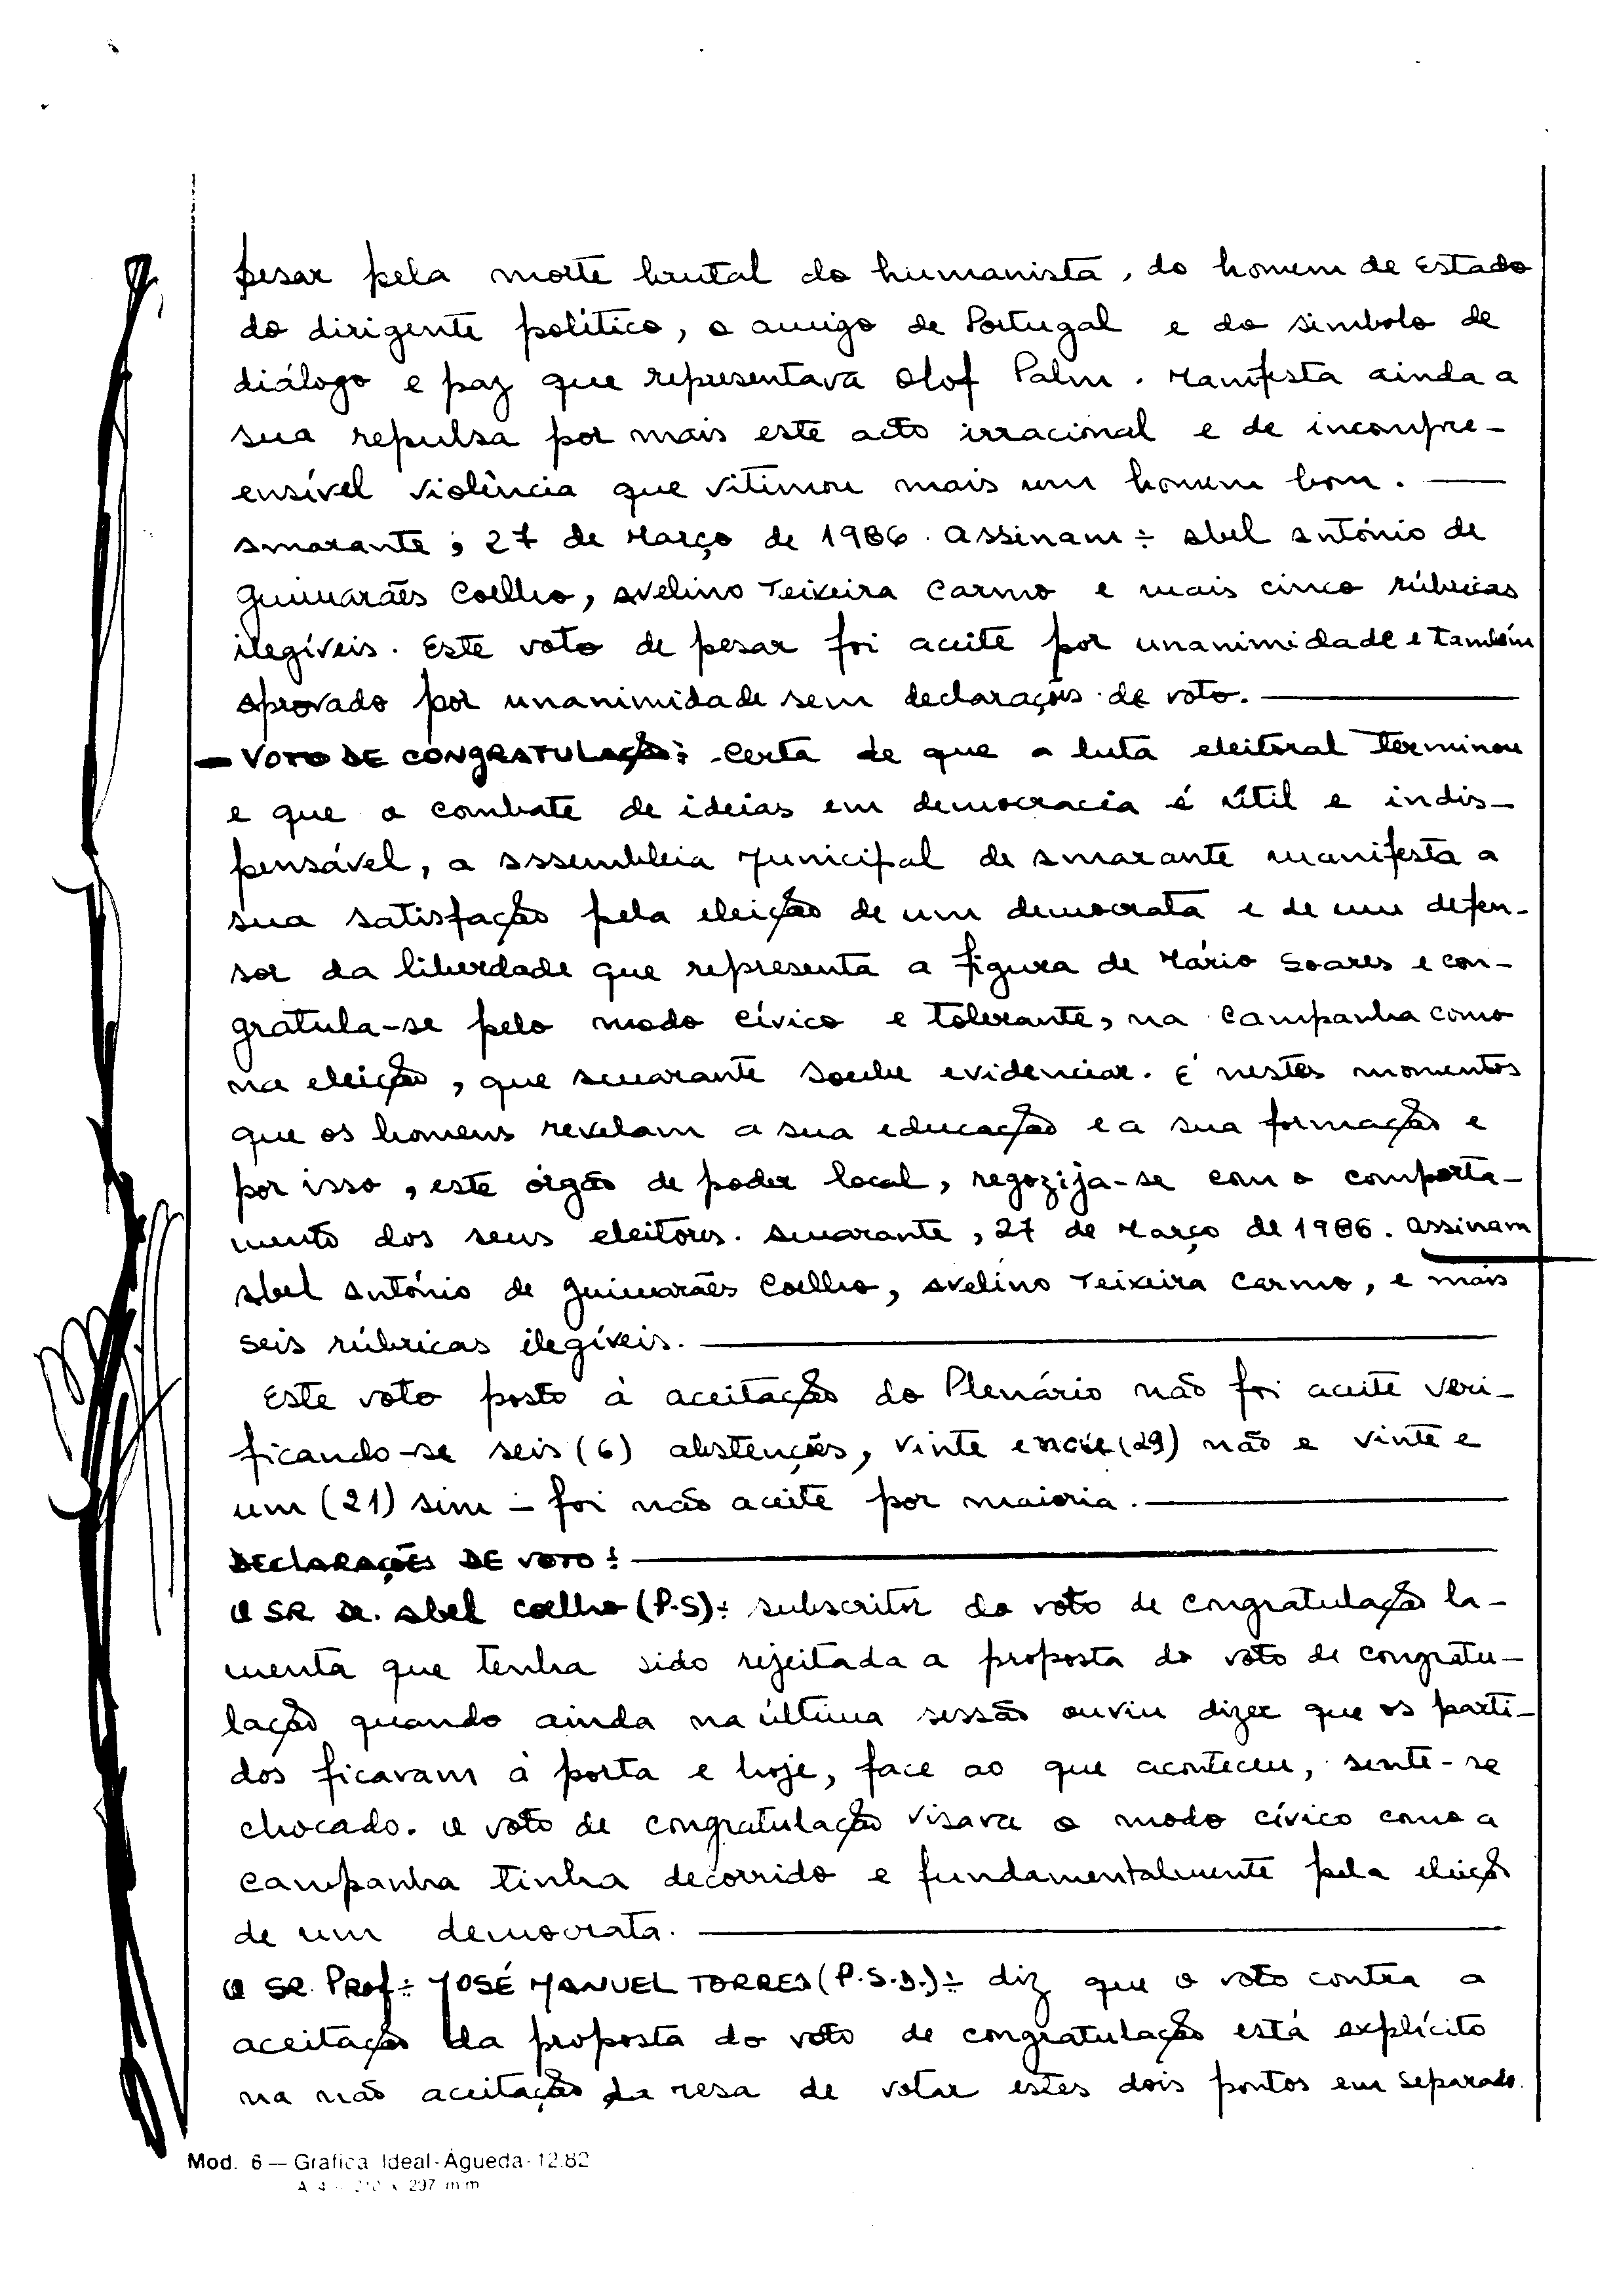 pesar pela morte brutal do humanista, do homem de Estado
do dirigente político, o amigo de Portugal e do simbolo de
diálogo e paz que representava Olof Palm. Manifesta ainda a
sua repulsa por mais este acto irracional e de incompre-
ensível violência que vitimou mais um homem bom. —
Amarante, 27 de Março de 1986. Assinam: Abel António de
Guimarães Coelho, Avelino Teixeira Carmo e mais cinco rúbricas
ilegíveis. Este voto de pesar foi aceite por unanimidade e também
aprovado por unanimidade sem declarações de voto. —
— VOTO DE CONGRATULAÇÃO: Certa de que a luta eleitoral terminou
e que o combate de ideias em democracia é útil e indis-
pensável, a Assembleia Municipal de Amarante manifesta a
sua satisfação pela eleição de um democrata e de um defen-
sor da liberdade que representa a figura de Mário Soares e con-
gratula-se pelo modo cívico e tolerante, na campanha como
na eleição, que Amarante soube evidenciar. É nestes momentos
que os homens revelam a sua educação e a sua formação e
por isso, este órgão de poder local, regozija-se com o comporta-
mento dos seus eleitores. Amarante, 27 de Março de 1986. Assinam
Abel António de Guimarães Coelho, Avelino Teixeira Carmo, e mais
seis rúbricas ilegíveis. —
Este voto posto à aceitação do Plenário não foi aceite veri-
ficando-se seis (6) abstenções, vinte e nove (29) não e vinte e
um (21) sim — foi não aceite por maioria. —
DECLARAÇÕES DE VOTO: —
O SR Dr. Abel Coelho (P.S): subscritor do voto de congratulação la-
menta que tenha sido rejeitada a proposta do voto de congratu-
lação quando ainda na última sessão ouviu dizer que os parti-
dos ficavam à porta e hoje, face ao que aconteceu, sente-se
chocado. O voto de congratulação visava o modo cívico como a
campanha tinha decorrido e fundamentalmente pela eleição
de um democrata. —
O SR. Prof: JOSÉ MANUEL TORRES (P.S.D.): diz que o voto contra a
aceitação da proposta do voto de congratulação está explícito
na não aceitação da mesa de votar estes dois pontos em separado.
Mod. 6 — Grafica Ideal - Águeda - 12.82
A 4 - 210 x 297 mm